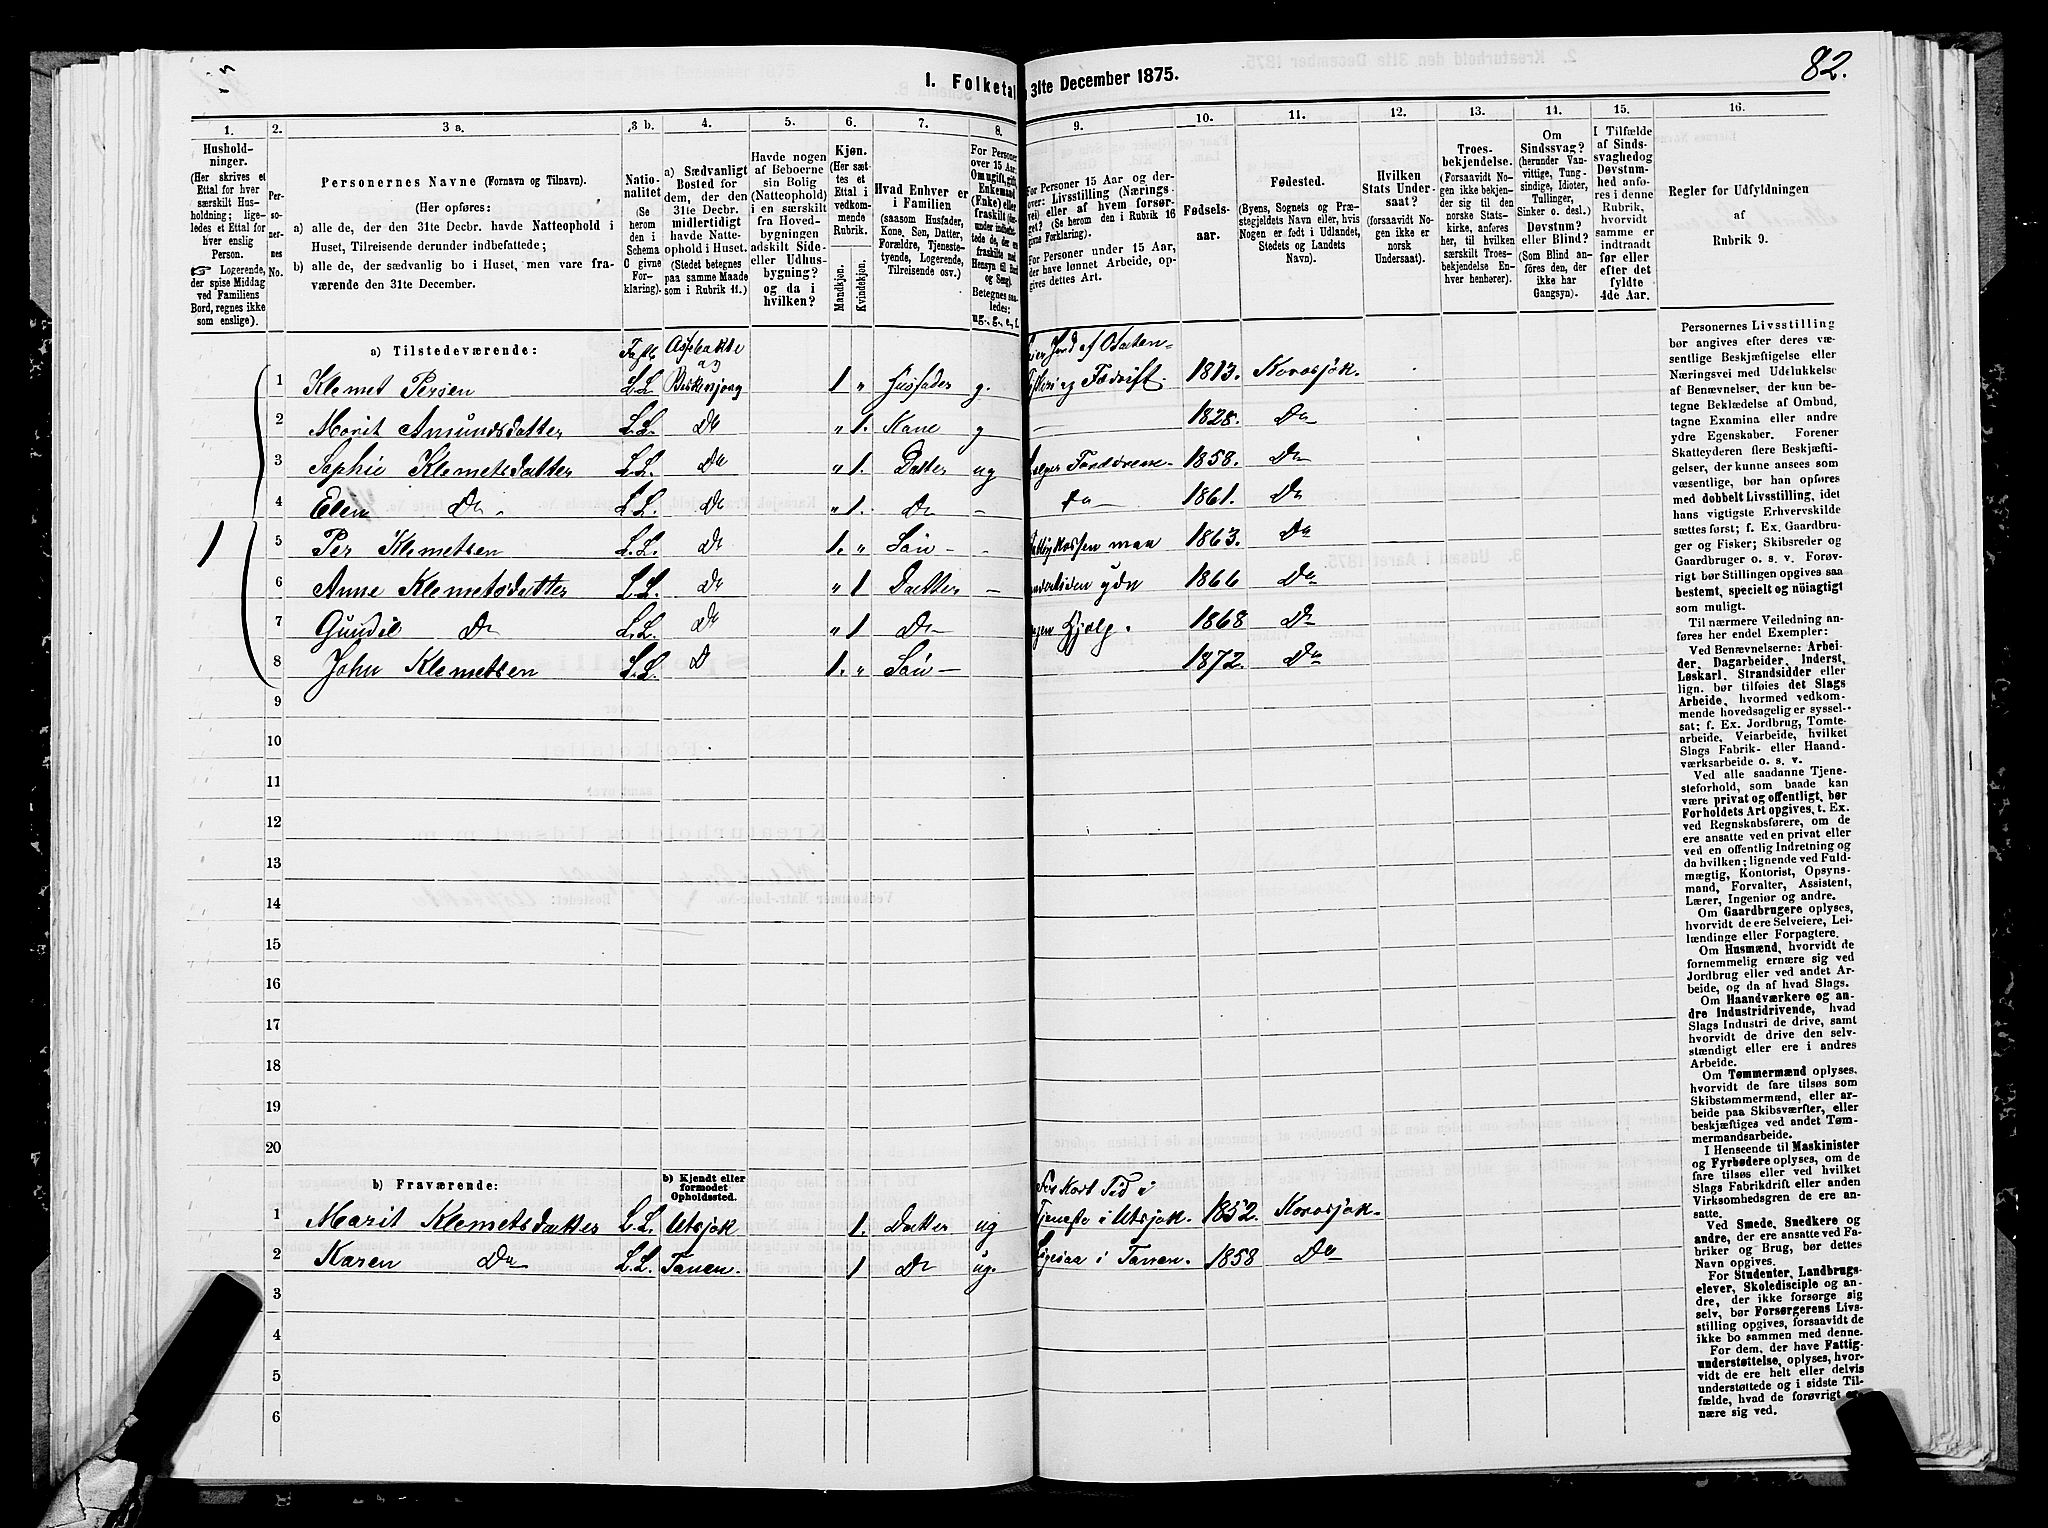 82.
1. Folketal
31te December 1875.
1.
2.
3 a.
3 b.
4.
5.
6.
7.
8.
9.
10.
11.
12.
13.
14.
15.
16.
Hushold-
ninger.
(Her skrives et
Ettal for hver
særskilt Hus-
holdning; lige-
ledes et Ettal for
hver enslig
Person.
☞ Logerende,
der spise Middag
ved Familiens
Bord, regnes ikke
som enslige).
Per-
so-
ner-
nes
No.
Personernes Navne (Fornavn og Tilnavn).
(Her opføres:
a) alle de, der den 31te Decbr. havde Natteophold i
Huset, Tilreisende derunder indbefattede;
b) alle de, der sædvanlig bo i Huset, men vare fra-
værende den 31te December.
Natio-
nalitet
(Se
herom
den i
Schema
C givne
For-
klaring).
a) Sædvanligt
Bosted for
dem, der den
31te Decbr.
midlertidigt
havde Natte-
ophold i Huset.
(Stedet betegnes
paa samme Maade
som i Rubrik 11.)
Havde nogen
af Beboerne
sin Bolig
(Natteophold)
i en særskilt
fra Hoved-
bygningen
adskilt Side-
eller Udhus-
bygning?
og da i
hvilken?
Kjøn.
(Her sæt-
tes et
Ettal i
vedkom-
mende
Rubrik.
Mandkjøn.
Kvindekjøn.
Hvad Enhver er
i Familien
(saasom Husfader,
Kone, Søn, Datter,
Forældre, Tjeneste-
tyende, Logerende,
Tilreisende osv.)
For Personer
over 15 Aar:
Om ugift, gift,
Enkemand
(Enke) eller
fraskilt
Betegnes saa-
ledes:
ug., g., e., f.
For Personer 15 Aar og der-
over: Livsstilling (Nærings-
vei) eller af hvem forsør-
get? (Se herom den i Rubrik 16
givne Forklaring).
For Personer under 15 Aar,
der have lønnet Arbeide, op-
gives dettes Art.
Fødsels-
aar.
Fødested.
(Byens, Sognets og Præ-
stegjeldets Navn eller, hvis
Nogen er født i Udlandet,
Stedets og Landets
Navn).
Hvilken
Stats Under-
saat?
(forsaavidt No-
gen ikke er
norsk
Undersaat).
Troes-
bekjendelse.
(Forsaavidt No-
gen ikke bekjen-
der sig til den
norske Stats-
kirke, anføres
her, til hvilken
særskilt Troes-
bekjendelse En-
hver henhører).
Om
Sindssvag?
(herunder Van-
vittige, Tung-
sindige, Idioter,
Tullinger,
Sinker o. desl.)
Døvstum?
eller Blind?
(Som Blind an-
føres den, der
ikke har
Gangsyn).
I Tilfælde
af Sinds-
svaghed og
Døvstum-
hed anfø-
res i denne
Rubrik,
hvorvidt
samme er
indtraadt
før eller
efter det
fyldte
4de Aar.
Regler for Udfyldningen
af
Rubrik 9.
a) Tilstedeværende:
1
1 Klemet Persen L.L. 1 " Husfader g. 1813. Korosjok.
2 Marit Amundsdatter L.L. Do " 1. Kone g - 1828. Do
3 Sophie Klemetsdatter L.L. Do " 1. Datter ug 1858. Do
4 Elen Do L.L. Do " 1. Do - do 1861. Do
5 Per Klemetsen L.L. Do 1. " Søn - - 1863. Do
6 Anne Klemetsdatter L.L. Do " 1 Datter - 1866 Do
7 Gundil Do L.L. Do " 1 Do - Hjælp. 1868 Do
8 John Klemetsen L.L. D 1. " Søn - 1872. Do
9
10
11
12
13
14
15
16
17
18
19
20
b) Fraværende:
b) Kjendt eller
formodet
Opholdssted.
For Kort Tid i
1 Marit Klemetsdatter L.L. Utsjok 1. Datter ug Tjeneste i Utsjok. 1852. Korosjok.
2 Karen Do L.L. Tanen. 1 Do ug. Ligesaa i Tanen. 1858 Do
3
4
5
6
Personernes Livsstilling
bør angives efter deres væ-
sentlige Beskjæftigelse eller
Næringsvei med Udelukkelse
af Benævnelser, der kun be-
tegne Beklædelse af Ombud,
tagne Examina eller andre
ydre Egenskaber. Forener
Skatteyderen flere Beskjæfti-
gelser, der kunne ansees som
væsentlige, bør han opføres
med dobbelt Livsstilling, idet
hans vigtigste Erhvervskilde
sættes først; f. Ex. Gaardbru-
ger og Fisker; Skibsreder og
Gaardbruger o. s. v. Forøv-
rigt bør Stillingen opgives saa
bestemt, specielt og nøiagtigt
som muligt.
Til nærmere Veiledning an-
føres her endel Exempler:
Ved Benævnelserne: Arbei-
der, Dagarbeider, Inderst,
Løskarl, Strandsidder eller
lign. bør tilføies det Slags
Arbeide, hvormed vedkom-
mende hovedsagelig er syssel-
sat; f. Ex. Jordbrug, Tomte-
arbeide, Veiarbeide, hvilket
Slags Fabrik- eller Haand-
værksarbeide o. s. v.
Ved alle saadanne Tjene-
steforhold, som baade kan
være privat og offentligt, bør
Forholdets Art opgives, t. Ex.
ved Regnskabsførere, om de
ere ansatte ved en privat eller
ved en offentlig Indretning og
da hvilken; lignende ved Fuld-
mægtig, Kontorist, Opsyns-
mand, Forvalter, Assistent,
Lærer, Ingeniør og andre.
Om Gaardbrugere oplyses,
hvorvidt de ere Selveiere, Lei-
lændinge eller Forpagtere.
Om Husmænd, hvorvidt de
fornemmelig ernære sig ved
Jordbrug eller ved andet Ar-
beide, og da af hvad Slags.
Om Haandværkere og an-
dre Industridrivende, hvad
Slags Industri de drive, samt
hvorvidt de drive den selv-
stændigt eller ere i andres
Arbeide.
Om Tømmermænd oplyses,
hvorvidt de fare tilsøs som
Skibstømmermænd, eller ar-
beide paa Skibsværfter, eller
beskjæftiges ved andet Tøm-
mermandsarbeide.
I Henseende til Maskinister
og Fyrbødere oplyses, om de
fare tilsøs eller ved hvilket
Slags Fabrikdrift eller anden
Virksomhedsgren de ere an-
satte.
Ved Smede, Snedkere og
andre, der ere ansatte ved Fa-
briker og Brug, bør dettes
Navn opgives.
For Studenter, Landbrugs-
elever, Skoledisciple og an-
dre, der ikke forsørge sig
selv, bør Forsørgerens Livs-
stilling opgives, forsaavidt de
ikke bo sammen med denne.
For dem, der have Fattig-
understøttelse, oplyses, hvor-
vidt de ere helt eller delvis
understøttede og i sidste Til-
fælde, hvad de forøvrigt er-
nære sig ved.